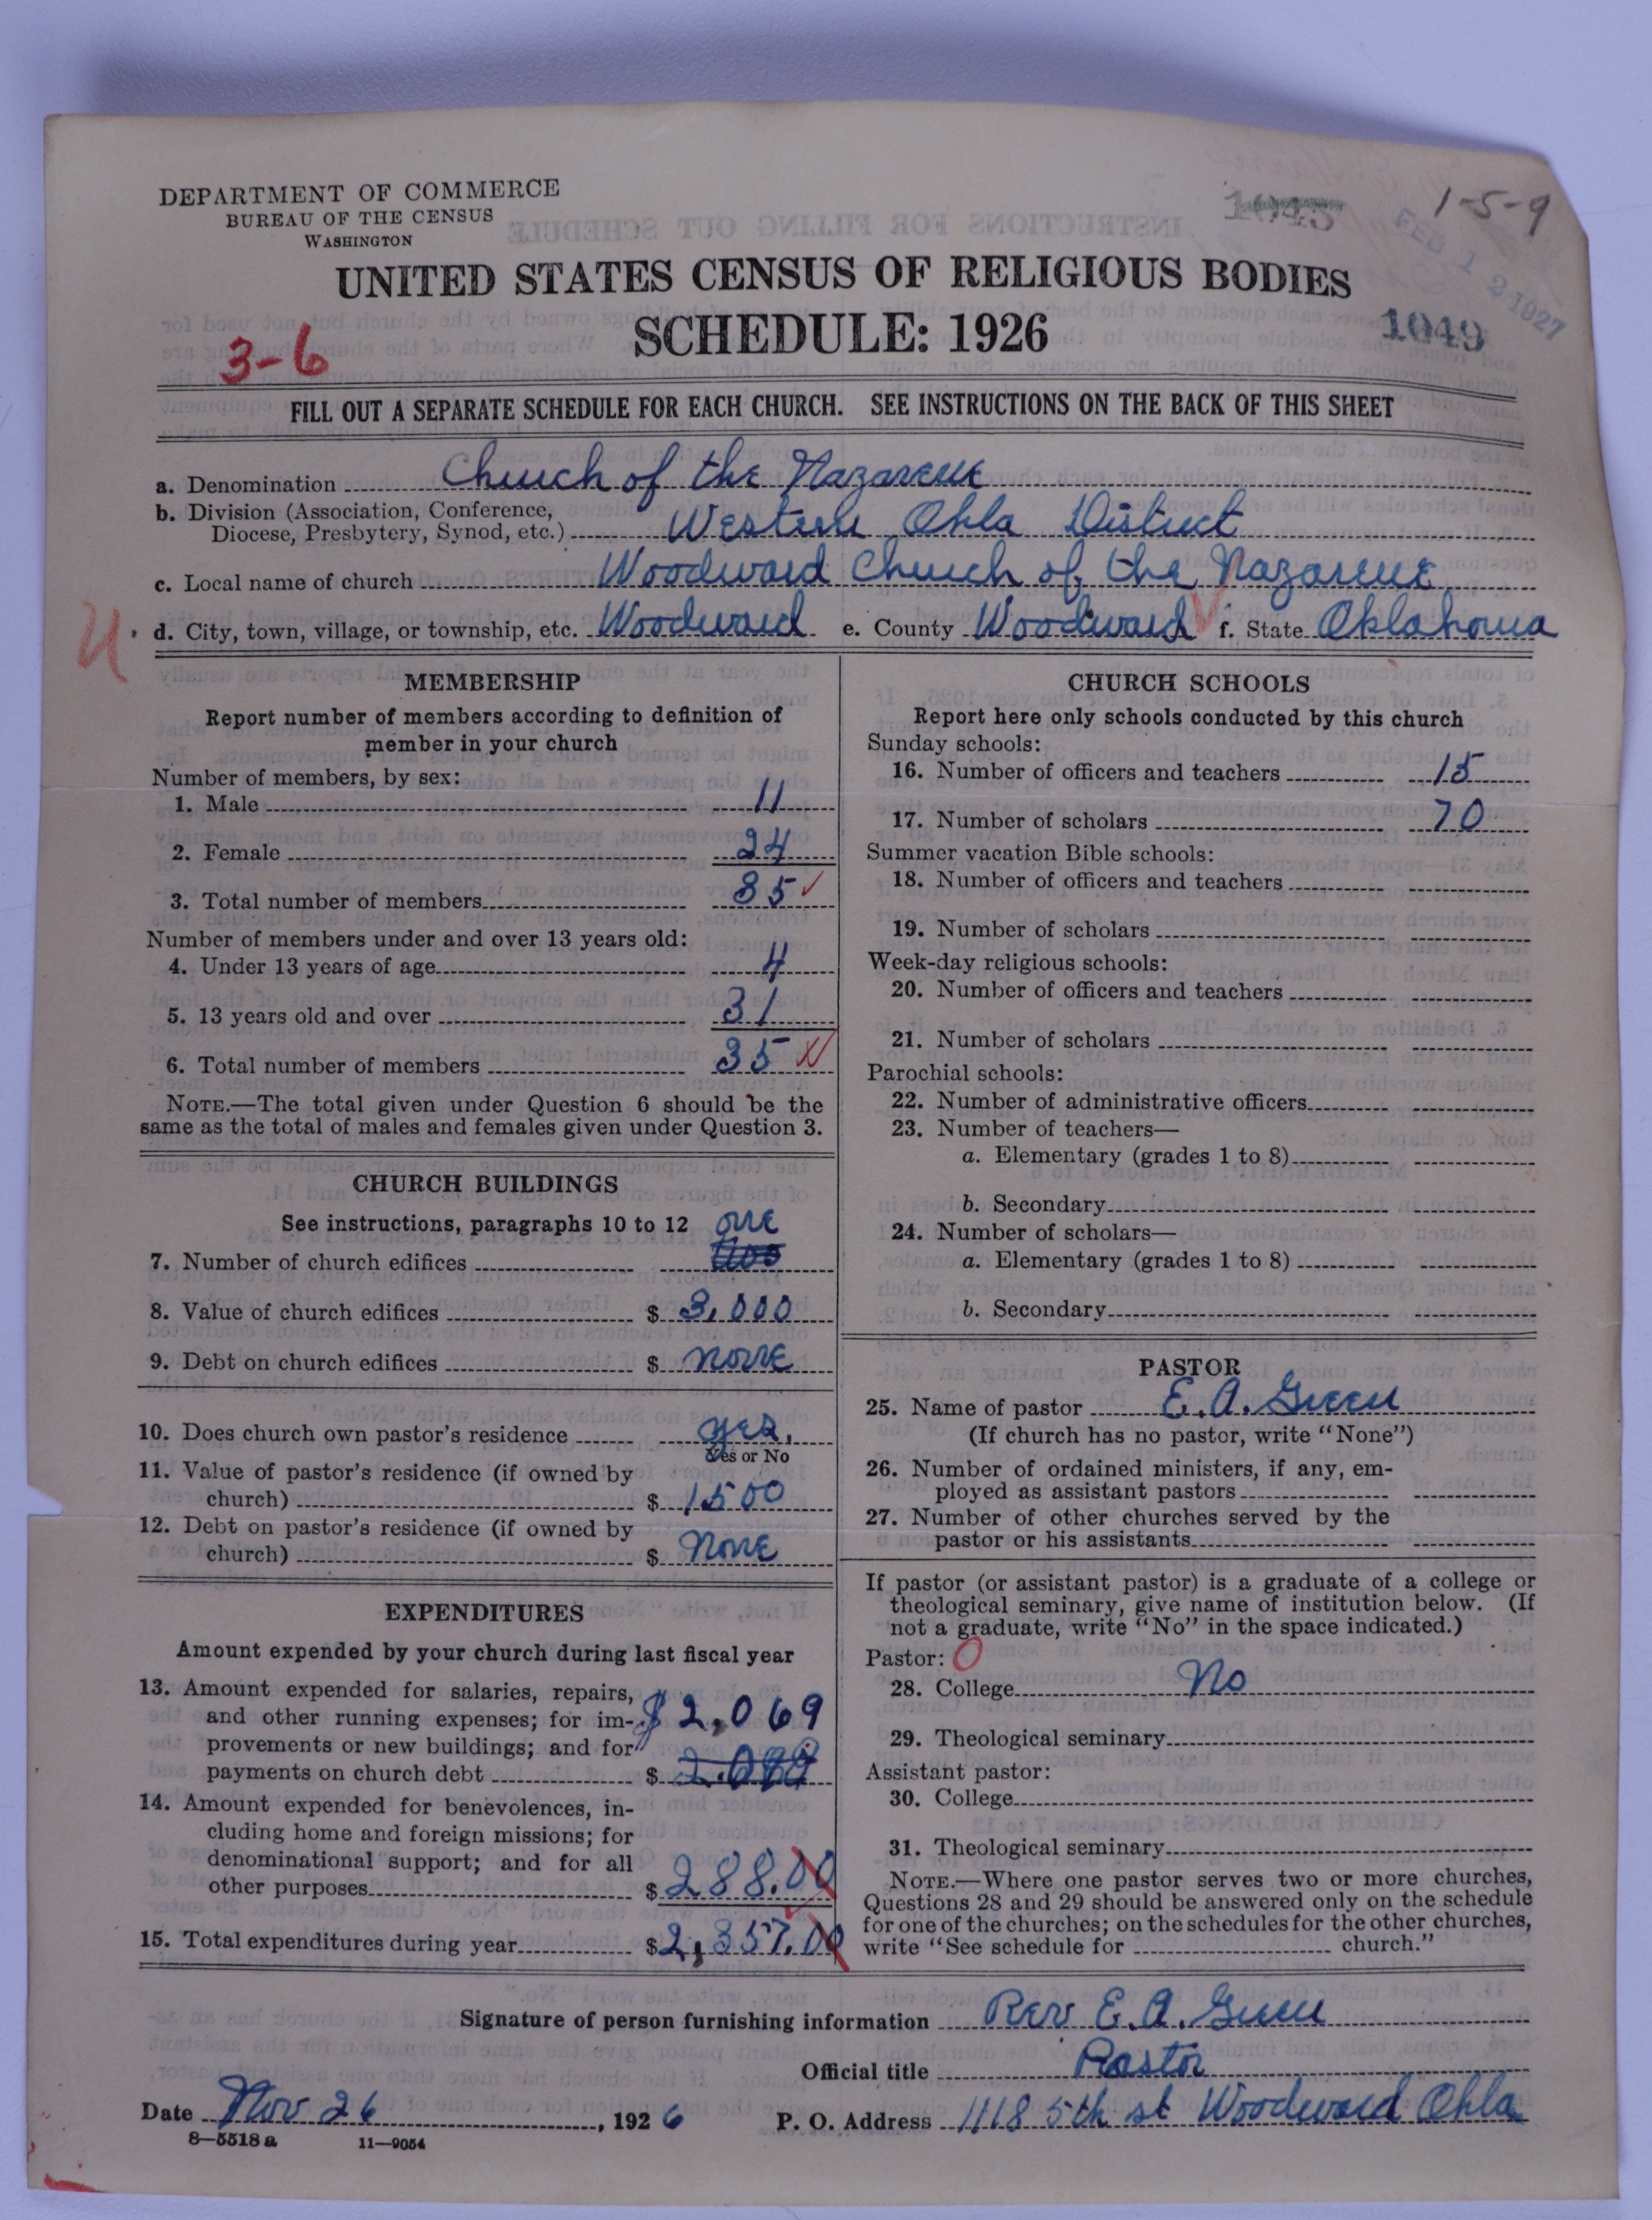 DEPARTMENT OF COMMERCE
BUREAU OF THE CENSUS
WASHINGTON
1-5-9
FEB 12 1927
UNITED STATES CENSUS OF RELIGIOUS BODIES
SCHEDULE: 1926
1049
3-6
FILL OUT A SEPARATE SCHEDULE FOR EACH CHURCH. SEE INSTRUCTIONS ON THE BACK OF THIS SHEET
a. Denomination Church of the Nazarene
b. Division (Association, Conference,
Diocese, Presbytery, Synod, etc.) Western Okla District
c. Local name of church Woodward Church of the Nazarene
d. City, town, village, or township, etc. Woodward e. County Woodward f. State Oklahoma
MEMBERSHIP
Report number of members according to definition of
member in your church
Number of members, by sex:
1. Male 11
2. Female 24
3. Total number of members 35
Number of members under and over 13 years old:
4. Under 13 years of age 4
5. 13 years old and over 31
6. Total number of members 35
NOTE.—The total given under Question 6 should be the
same as the total of males and females given under Question 3.
CHURCH BUILDINGS
See instructions, paragraphs 10 to 12
one
7. Number of church edifices two
8. Value of church edifices $ 3,000
9. Debt on church edifices $ none
10. Does church own pastor's residence yes.
Yes or No
11. Value of pastor's residence (if owned by
church) $ 1500
12. Debt on pastor's residence (if owned by
church) $ None
EXPENDITURES
Amount expended by your church during last fiscal year
13. Amount expended for salaries, repairs,
and other running expenses; for im- $2,069
provements or new buildings; and for
payments on church debt $
14. Amount expended for benevolences, in-
cluding home and foreign missions; for
denominational support; and for all
other purposes $ 288.00
15. Total expenditures during year $2,357.00
CHURCH SCHOOLS
Report here only schools conducted by this church
Sunday schools:
16. Number of officers and teachers 15
17. Number of scholars 70
Summer vacation Bible schools:
18. Number of officers and teachers
19. Number of scholars
Week-day religious schools:
20. Number of officers and teachers
21. Number of scholars
Parochial schools:
22. Number of administrative officers
23. Number of teachers—
a. Elementary (grades 1 to 8)
b. Secondary
24. Number of scholars—
a. Elementary (grades 1 to 8)
b. Secondary
PASTOR
25. Name of pastor E. A. Green
(If church has no pastor, write "None")
26. Number of ordained ministers, if any, em-
ployed as assistant pastors
27. Number of other churches served by the
pastor or his assistants
If pastor (or assistant pastor) is a graduate of a college or
theological seminary, give name of institution below. (If
not a graduate, write "No" in the space indicated.)
Pastor: O
28. College No
29. Theological seminary
Assistant pastor:
30. College
31. Theological seminary
NOTE.—Where one pastor serves two or more churches,
Questions 28 and 29 should be answered only on the schedule
for one of the churches; on the schedules for the other churches,
write "See schedule for church."
Signature of person furnishing information Rev E. A. Green
Official title Pastor
Date Nov 26, 1926 P. O. Address 1118 5th st Woodward Okla
8—5518a 11—9054